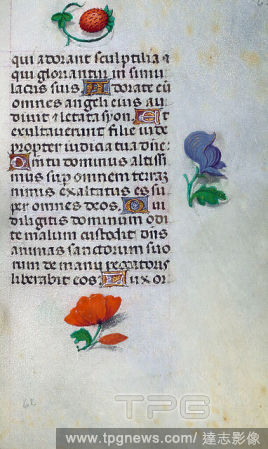 qui adorant sculptilia ⁊
qui gloriantur in simu
lacris suis. Adorate eū
omnes angeli eius au
divit ⁊ letata syon. Et
exultaverunt filie iude
propter iudicia tua dn̄e.
Qm̄ tu dominus altissi
mus sup omnem terrā
nimis exaltatus es su
per omnes deos. Qui
diligitis dominum odi
te malum custodit dn̄s
animas sanctorum suo
rum de manu peccatoris
liberabit eos. Lux or
62
TPG
www.tpgnews.com / 達志影像